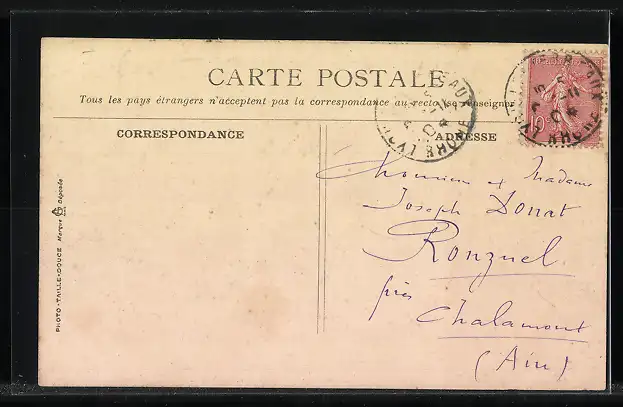 CARTE POSTALE
Tous les pays étrangers n'acceptent pas la correspondance au recto (se renseigner
CORRESPONDANCE
ADRESSE
Monsieur et Madame
Joseph Donat
Ronzuel
près
Chalamont
(Ain)
PHOTO-TAILLE-DOUCE Marque Déposée
10
RHONE